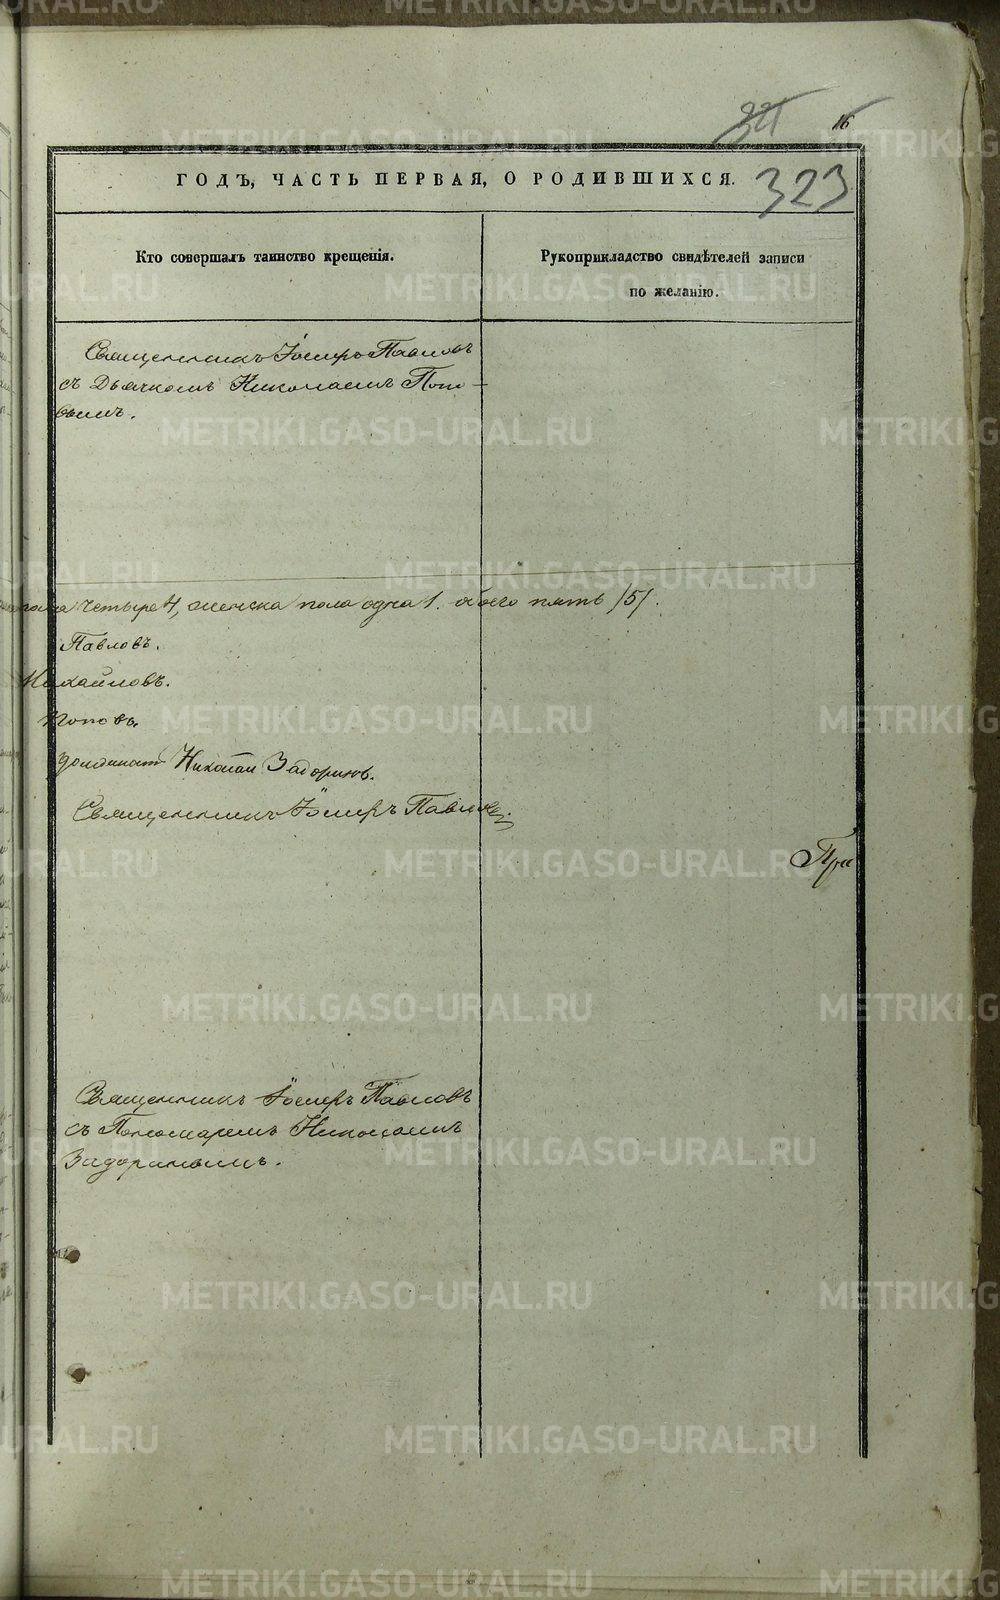 321
16
323
ГОДЪ, ЧАСТЬ ПЕРВАЯ, О РОДИВШИХСЯ.
Кто совершалъ таинство крещенія.
Рукоприкладство свидѣтелей записи
по желанію.
Священникъ Іосифъ Павловъ
съ Дьячкомъ Николаемъ Попо-
вымъ.
пола четыре 4, женска пола одна 1. обоего пять /5/.
Павловъ.
Михайловъ.
Поповъ.
Николай Задоринъ.
Священникъ Іосифъ Павловъ
При
Священникъ Іосифъ Павловъ
съ Пономаремъ Николаемъ
Задоринымъ.
METRIKI.GASO-URAL.RU